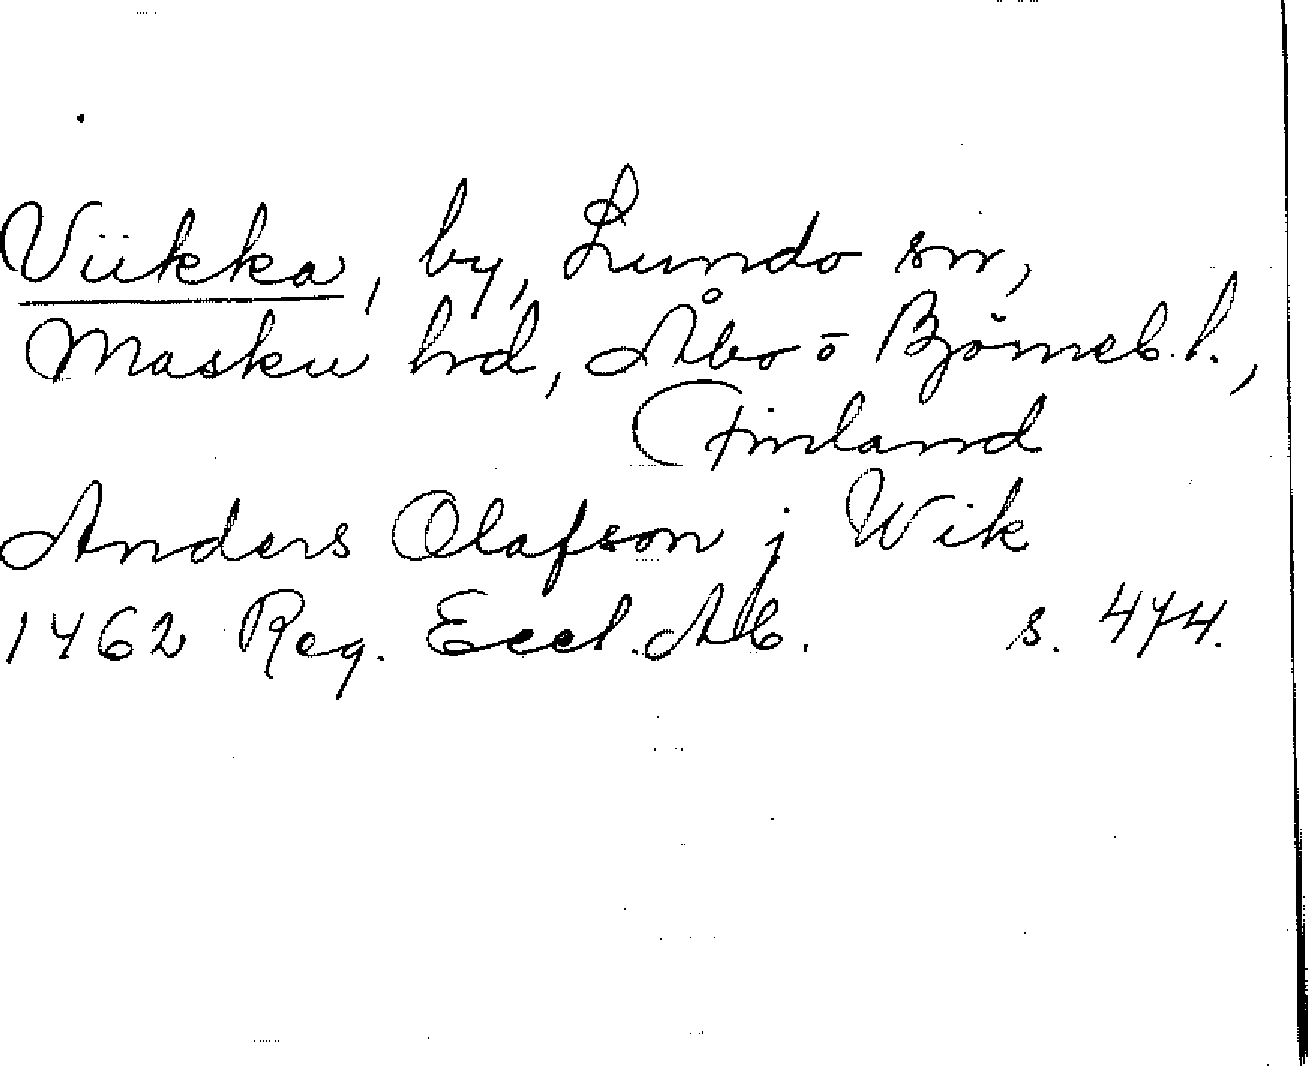 Viikka, by, Lundo sn,
Masku hd, Åbo o Björneb. l.,
Finland
Anders Olafson j Wik
1462 Reg. Eccl. Ab. s. 474.